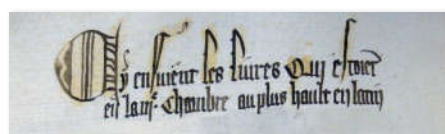 Cy ensuient les liures Qui estoient
en lautre chambre au plus hault en latin